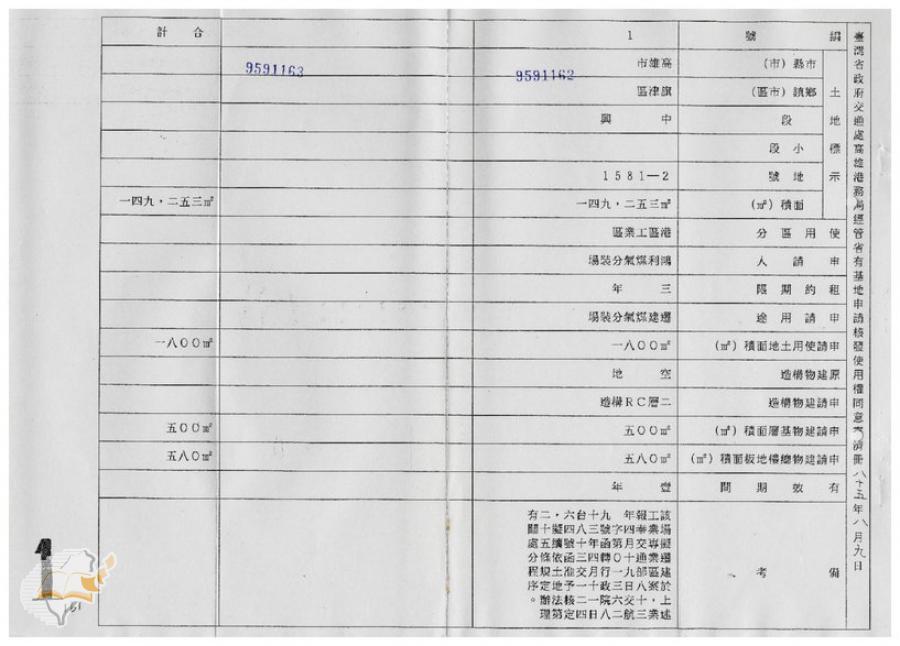 臺灣省政府交通處高雄港務局經管省有基地申請核發使用權同意書清冊 八十五年八月九日
編號 1 合計
土地標示
縣市(市) 高雄市
9591162 9591163
鄉鎮(市區) 旗津區
段 中興
小段
地號 1581—2
面積(㎡) 一四九,二五三㎡ 一四九,二五三㎡
使用區分 港區工業區
申請人 鴻利煤氣分裝場
租約期限 三年
申請用途 遷建煤氣分裝場
申請使用土地面積(㎡) 一八00㎡ 一八00㎡
原建物構造 空地
申請建物構造 二層RC構造
申請建物基層面積(㎡) 五00㎡ 五00㎡
申請建物總樓地板面積(㎡) 五八0㎡ 五八0㎡
有效期間 壹年
備考
該場擬遷建於上述
工業專業區案,業
報奉交通部八十三
年四月十九日交航
字第0一三六二
九四函轉行政院八
十三年四月十一日
台八十三交一二四
六號函准予核定
,擬續依土地法第
二十五條規定辦理
有關處分程序。
1
151